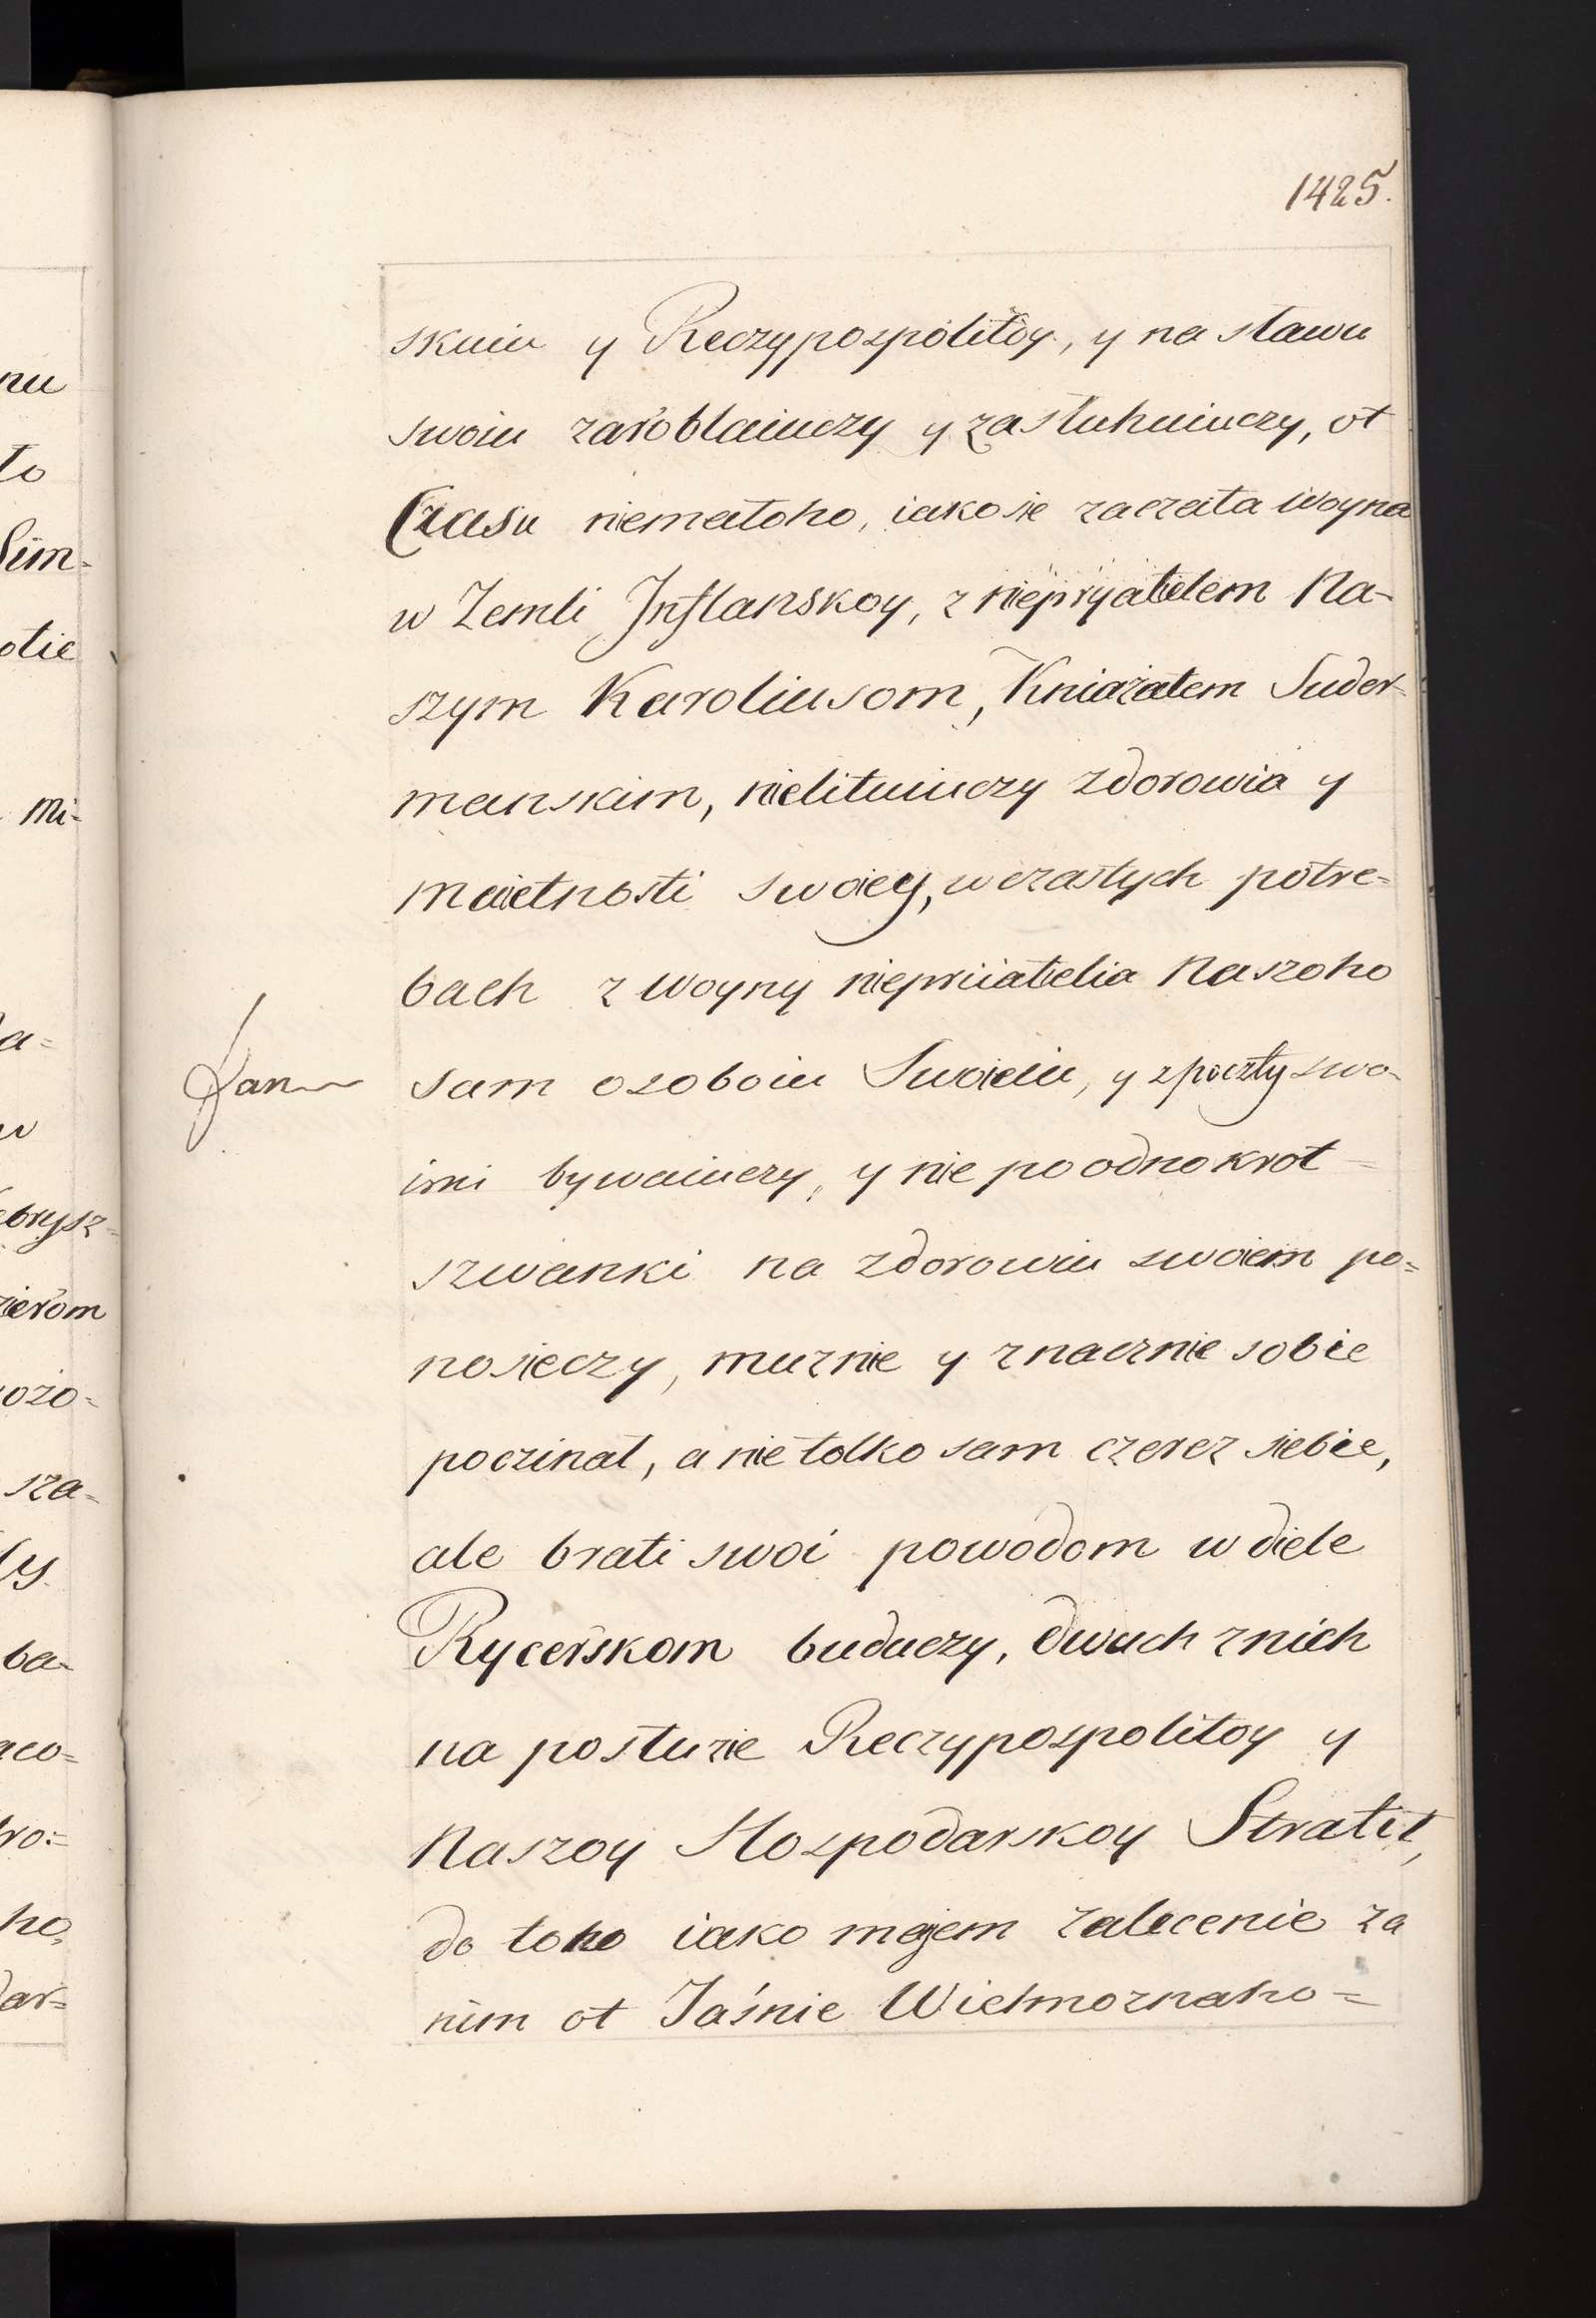 1425.
skuiu y Reczypospolitoy, y na sławu
swoiu zaroblaiuczy y zasłuhuiuczy, ot
Czasu niemałoho, iako sie zaczała woyna
w Zemli Inflanskoy, z niepryiatelem Na-
szym Karoliusom, Kniażatem Suder-
manskim, nielituiuczy zdorowia y
maietnosti swoiey, w czastych potre-
bach z Woyny niepriiatielia Naszoho
sam osoboiu Swoieiu, y z poczty swo-
imi bywaiuczy, y nie po odnokrot-
szwanki na zdorowiu swoiem po-
nosieczy, mużnie y znacznie sobie
poczinal, a nie tolko sam czerez siebie,
ale brati swoi powodom w diele
Rycerskom buduczy, dwuch z nich
na posłuzie Reczypospolitoy y
Naszoy Hospodarskoy Stratił,
do toho iako majem zalecenie za
nim ot Jaśnie Wielmoznaho=
nu
to
otie
Mi-
a=
w
brysz=
zierom
ozo-
sza-
ły.
ba-
aco=
ro:=
ho,
dar=